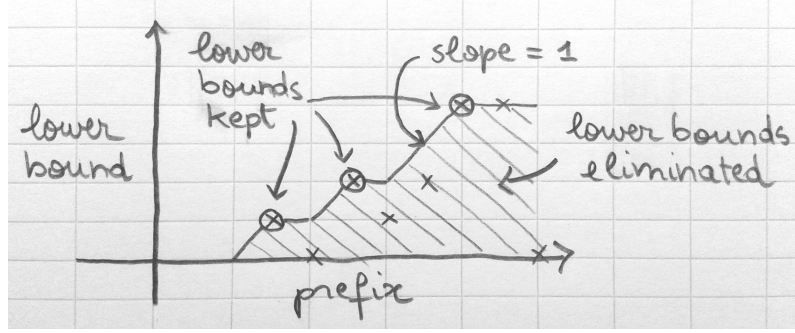 lower
bounds
kept
slope = 1
lower
bound
lower bounds
eliminated
prefix